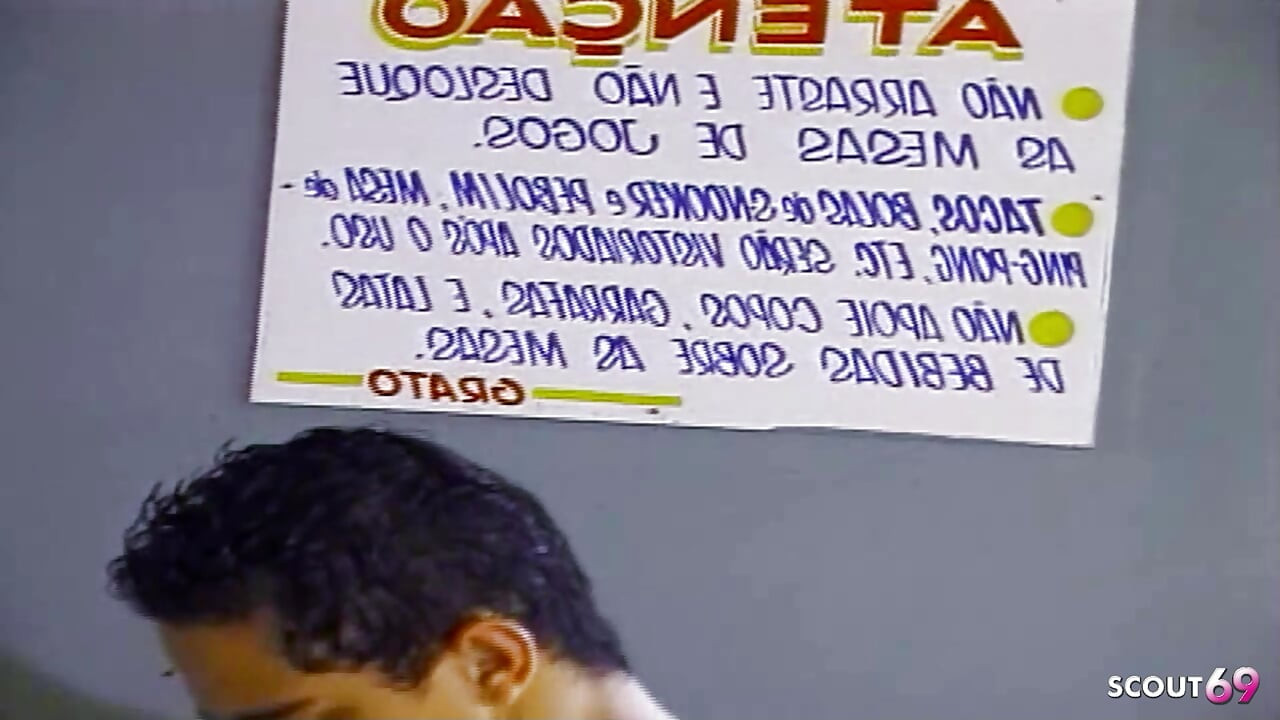 ATENÇÃO
NÃO ARRASTE E NÃO DESLOQUE
AS MESAS DE JOGOS.
TACOS, BOLAS de SNOOKER e PEBOLIM, MESA de
PING-PONG, ETC. SERÃO VISTORIADOS APÓS O USO.
NÃO APOIE COPOS, GARRAFAS, E LATAS
DE BEBIDAS SOBRE AS MESAS.
GRATO
SCOUT69